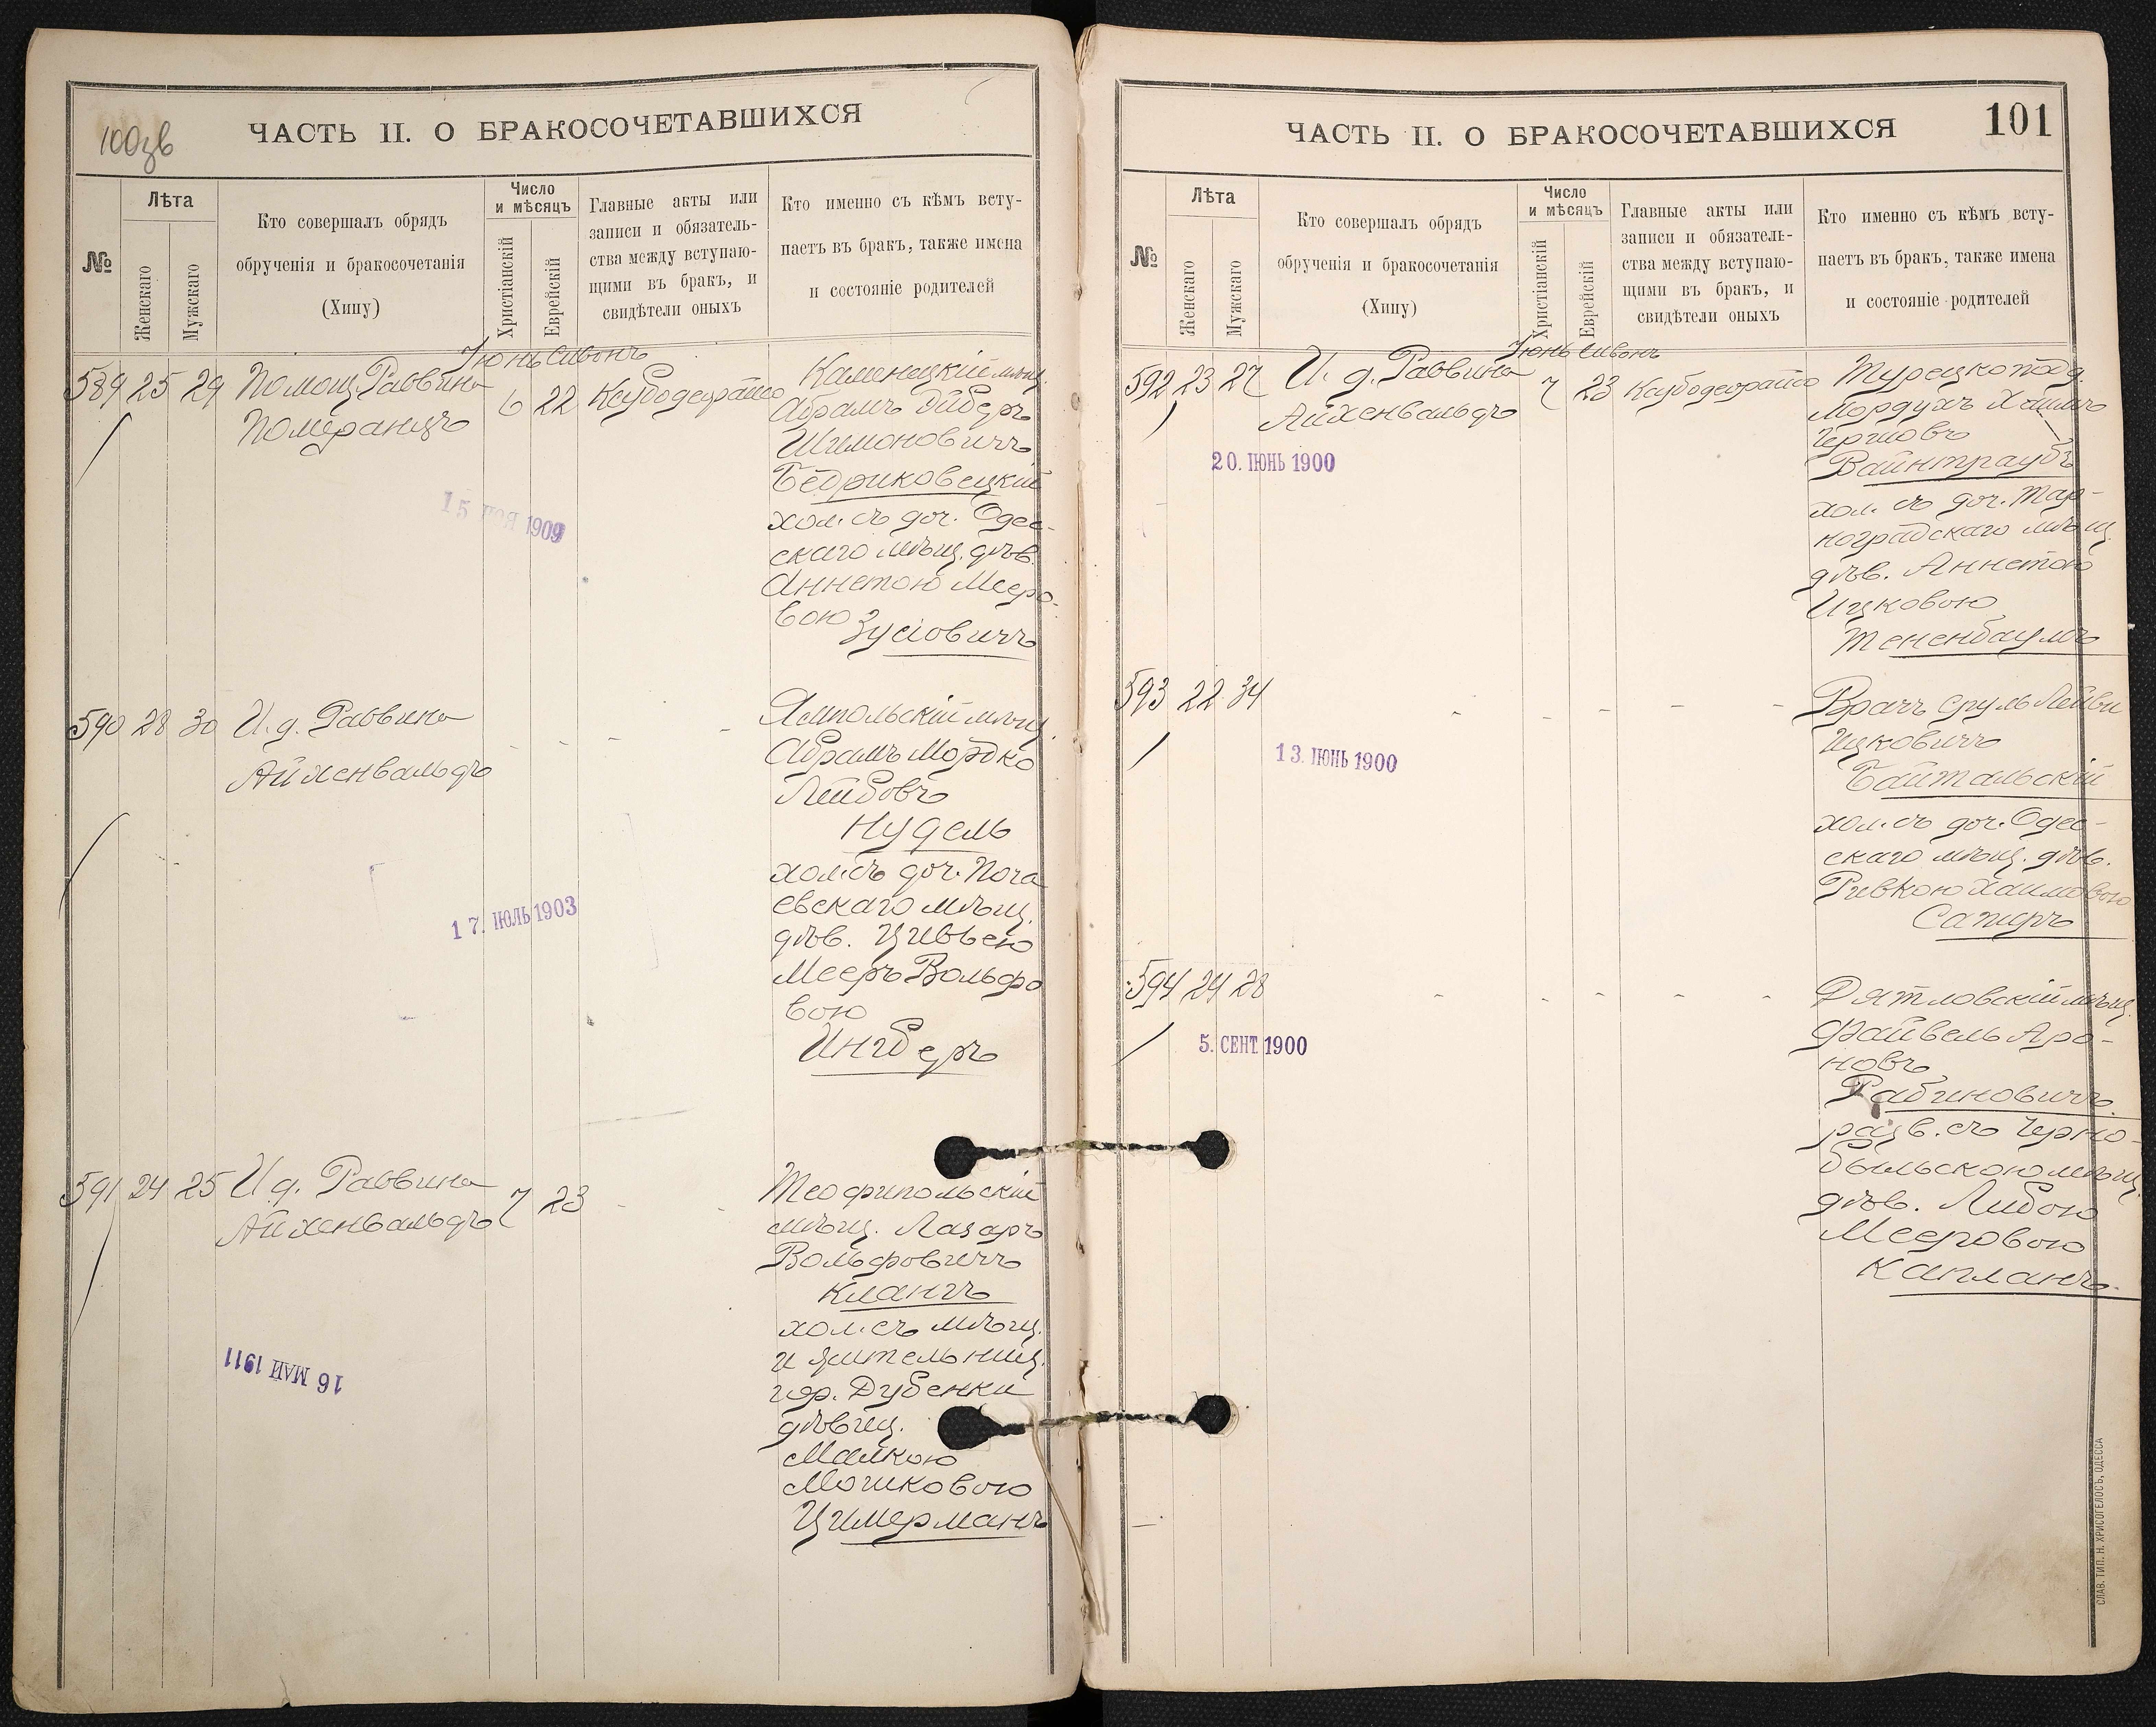 100зв
ЧАСТЬ II. О БРАКОСОЧЕТАВШИХСЯ
№
Лѣта
Женскаго
Мужскаго
Кто совершалъ обрядъ
обрученія и бракосочетанія
(Хипу)
Число
и мѣсяцъ
Христіанскій
Еврейскій
Главные акты или
записи и обязатель-
ства между вступаю-
щими въ бракъ, и
свидѣтели оныхъ
Кто именно съ кѣмъ всту-
паетъ въ бракъ, также имена
и состояніе родителей
Іюнь Сивонъ
589 25 29 Помощ. Раввина
Померанцъ
6 22
Каменецкій мѣщ.
Абрамъ Дуберъ
Шимоновичъ
Бедриковецкій
хол. съ доч. Одес-
скаго мѣщ. дѣв.
Аннетою Мееро-
вою
Зусіовичъ
15 НОЯ 1909
590 28 30 И. д. Раввина
Айхенвальдъ
Ямпольскій мѣщ.
Абрамъ Мордко
Лейбовъ
Нудель
хол. съ доч. Поча
евскаго мѣщ.
дѣв. Цивьею
Мееръ Вольфо
вою
Ингберъ
17. ІЮЛЬ 1903
591 24 25 И. д. Раввина
Айхенвальдъ 7 23
Теофипольскій
мѣщ. Лазарь
Вольфовичъ
Клангъ
хол. съ мѣщ.
и жительниц.
гор. Дубенки
дѣвиц.
Малкою
Мошковою
Цимерманъ
16 МАЙ 1911
ЧАСТЬ II. О БРАКОСОЧЕТАВШИХСЯ
101
№
Лѣта
Женскаго
Мужскаго
Кто совершалъ обрядъ
обрученія и бракосочетанія
(Хипу)
Число
и мѣсяцъ
Христіанскій
Еврейскій
Главные акты или
записи и обязатель-
ства между вступаю-
щими въ бракъ, и
свидѣтели оныхъ
Кто именно съ кѣмъ всту-
паетъ въ бракъ, также имена
и состояніе родителей
Іюнь Сивонъ
592 23 27 И. д. Раввина
Айхенвальдъ
7 23
Турецкоподд.
Мордухъ Хаимъ
Гершовъ
Вайнтраубъ
хол. съ доч. Тар-
ноградскаго мѣщ.
дѣв. Аннетою
Ицковою
Тененбаумъ
20. ІЮНЬ 1900
593 22 34
Врачъ Сруль Лейви
Ицковичъ
Байтальскій
хол. съ доч. Одес-
скаго мѣщ. дѣв.
Ривкою Хаимовою
Сапиръ
13. ІЮНЬ 1900
594 24 28
Дятловскій мѣщ.
Файвель Аро-
новъ
Рабиновичъ
разв. съ Черно-
быльскою мѣщ.
дѣв. Либою
Мееровою
Капланъ
5. СЕНТ. 1900
СЛАВ. ТИП. Н. ХРИСОГЕЛОСЪ, ОДЕССА